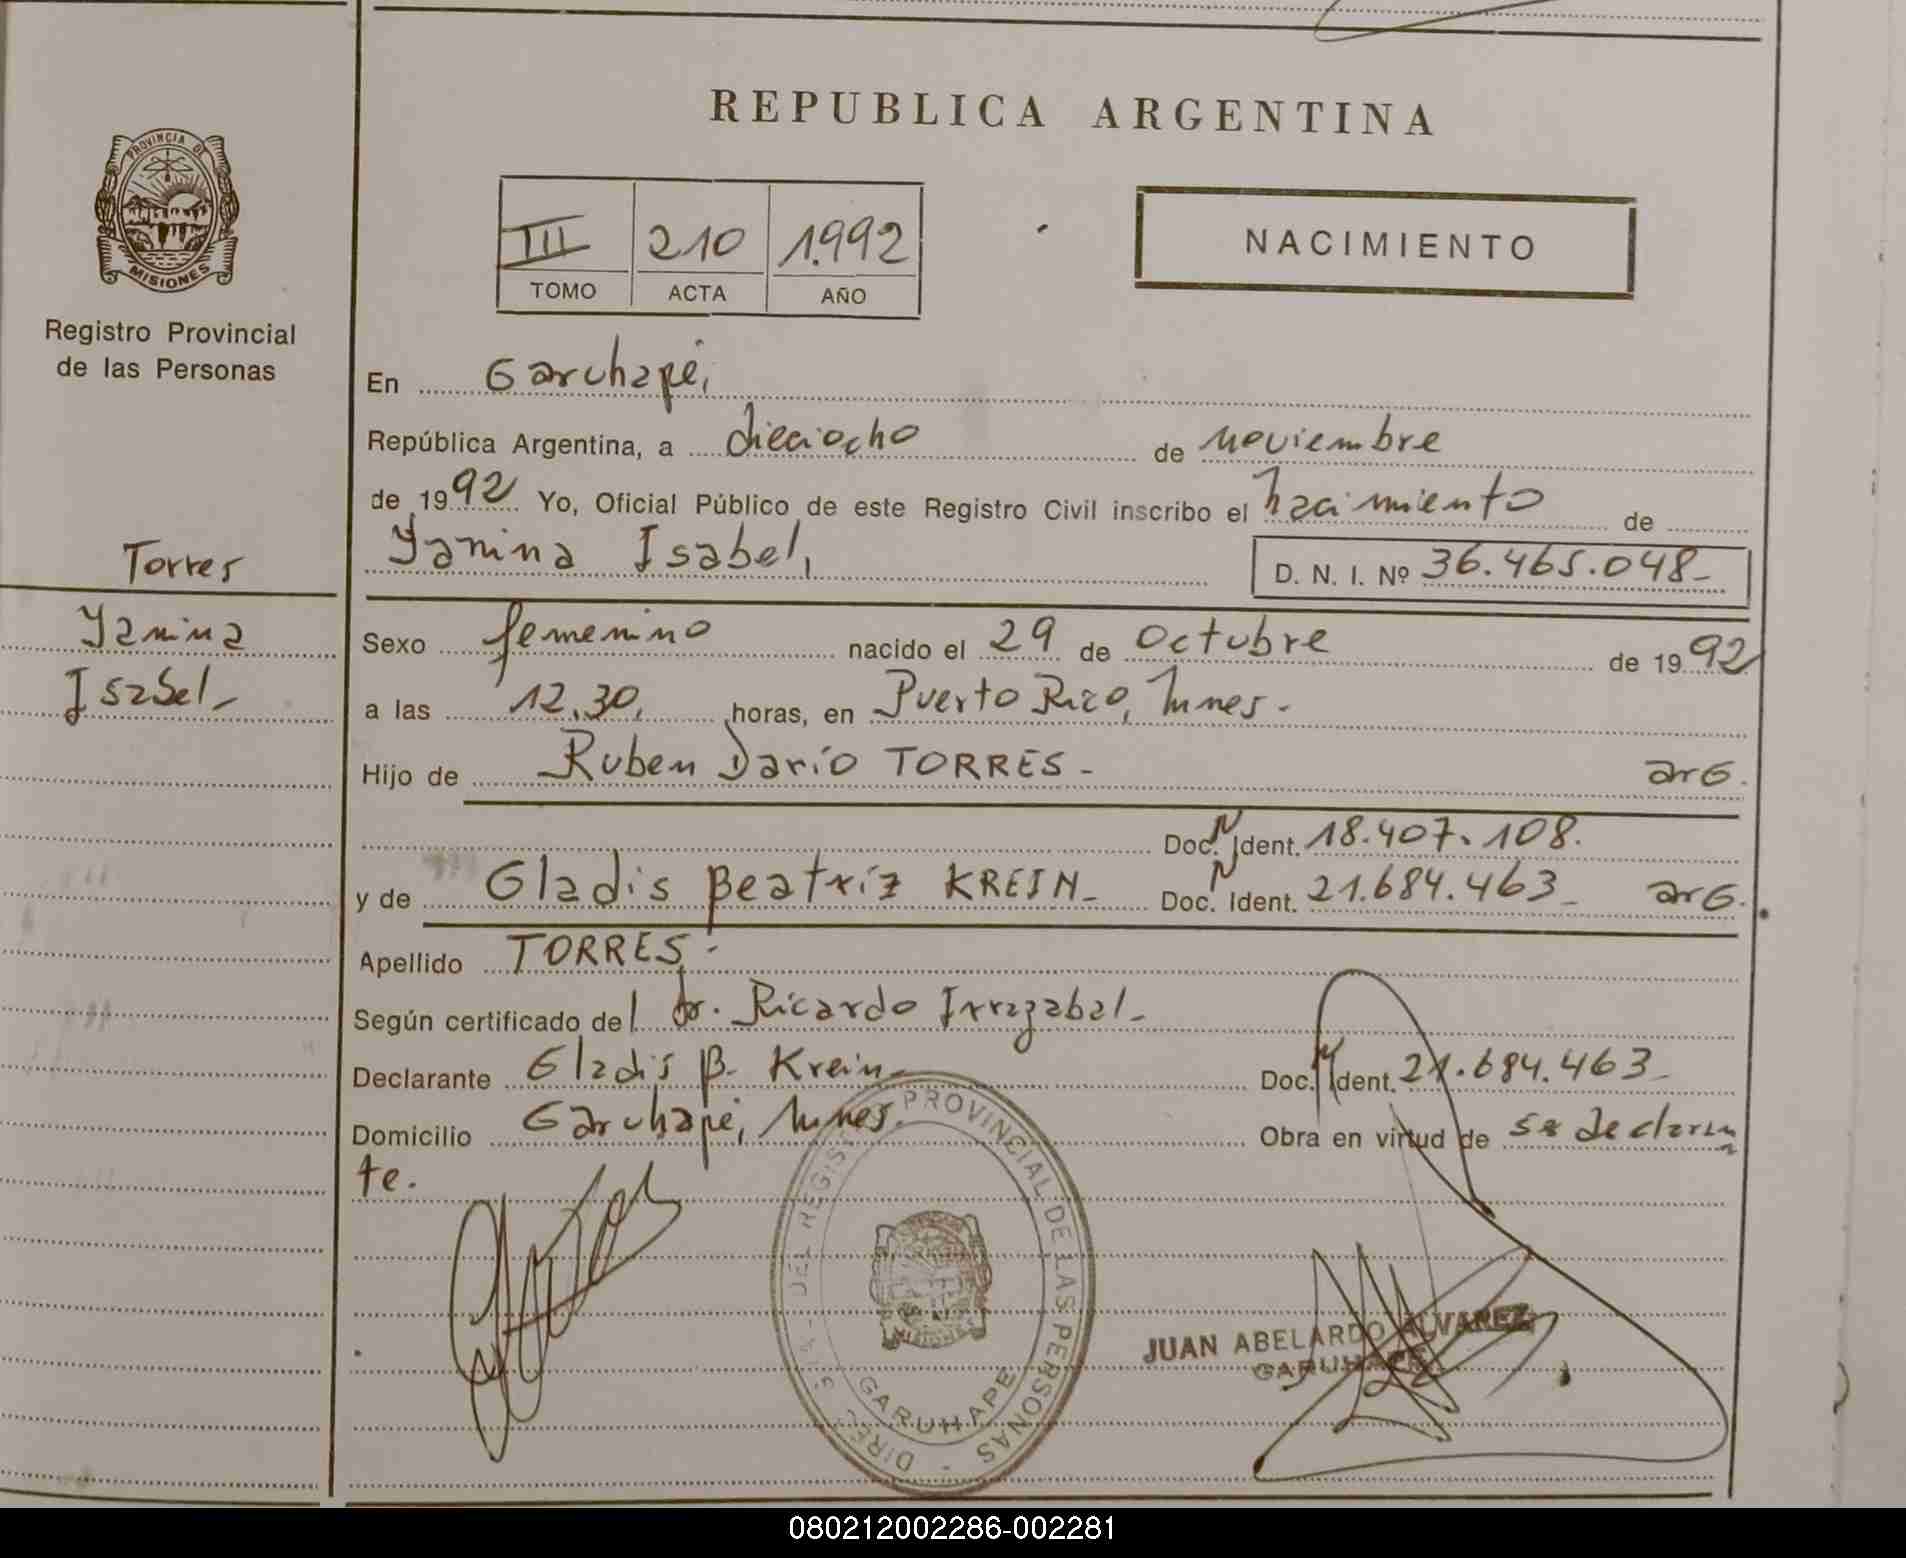 REPUBLICA ARGENTINA
PROVINCIA DE
MISIONES
Registro Provincial
de las Personas
III 210 1.992
TOMO ACTA AÑO
NACIMIENTO
En Garuhapé,
República Argentina, a dieciocho de noviembre
de 1992 Yo, Oficial Público de este Registro Civil inscribo el nacimiento de
Yanina Isabel, D. N. I. Nº 36.465.048-
Torres
Yanina
Isabel-
Sexo femenino nacido el 29 de Octubre de 1992
a las 12,30, horas, en Puerto Rico, Mnes.-
Hijo de Ruben Darío TORRES- arG.
Doc. N Ident. 18.407.108.
y de Gladis Beatríz KREIN- Doc. N Ident. 21.684.463- arG.
Apellido TORRES.-
Según certificado del dr. Ricardo Irrazabal-
Declarante Gladis B. Krein- Doc. N Ident. 21.684.463-
Domicilio Garuhapé, Mnes. Obra en virtud de se declaran
te.
DIRECC. GRAL. DEL REGISTRO PROVINCIAL DE LAS PERSONAS -
MISIONES
GARUHAPE
JUAN ABELARDO ALVAREZ
GARUHAPE
080212002286-002281